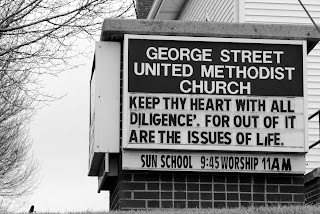 GEORGE STREET
UNITED METHODIST
CHURCH
KEEP THY HEART WITH ALL
DILIGENCE', FOR OUT OF IT
ARE THE ISSUES OF LIFE.
SUN SCHOOL 9:45 WORSHIP 11AM